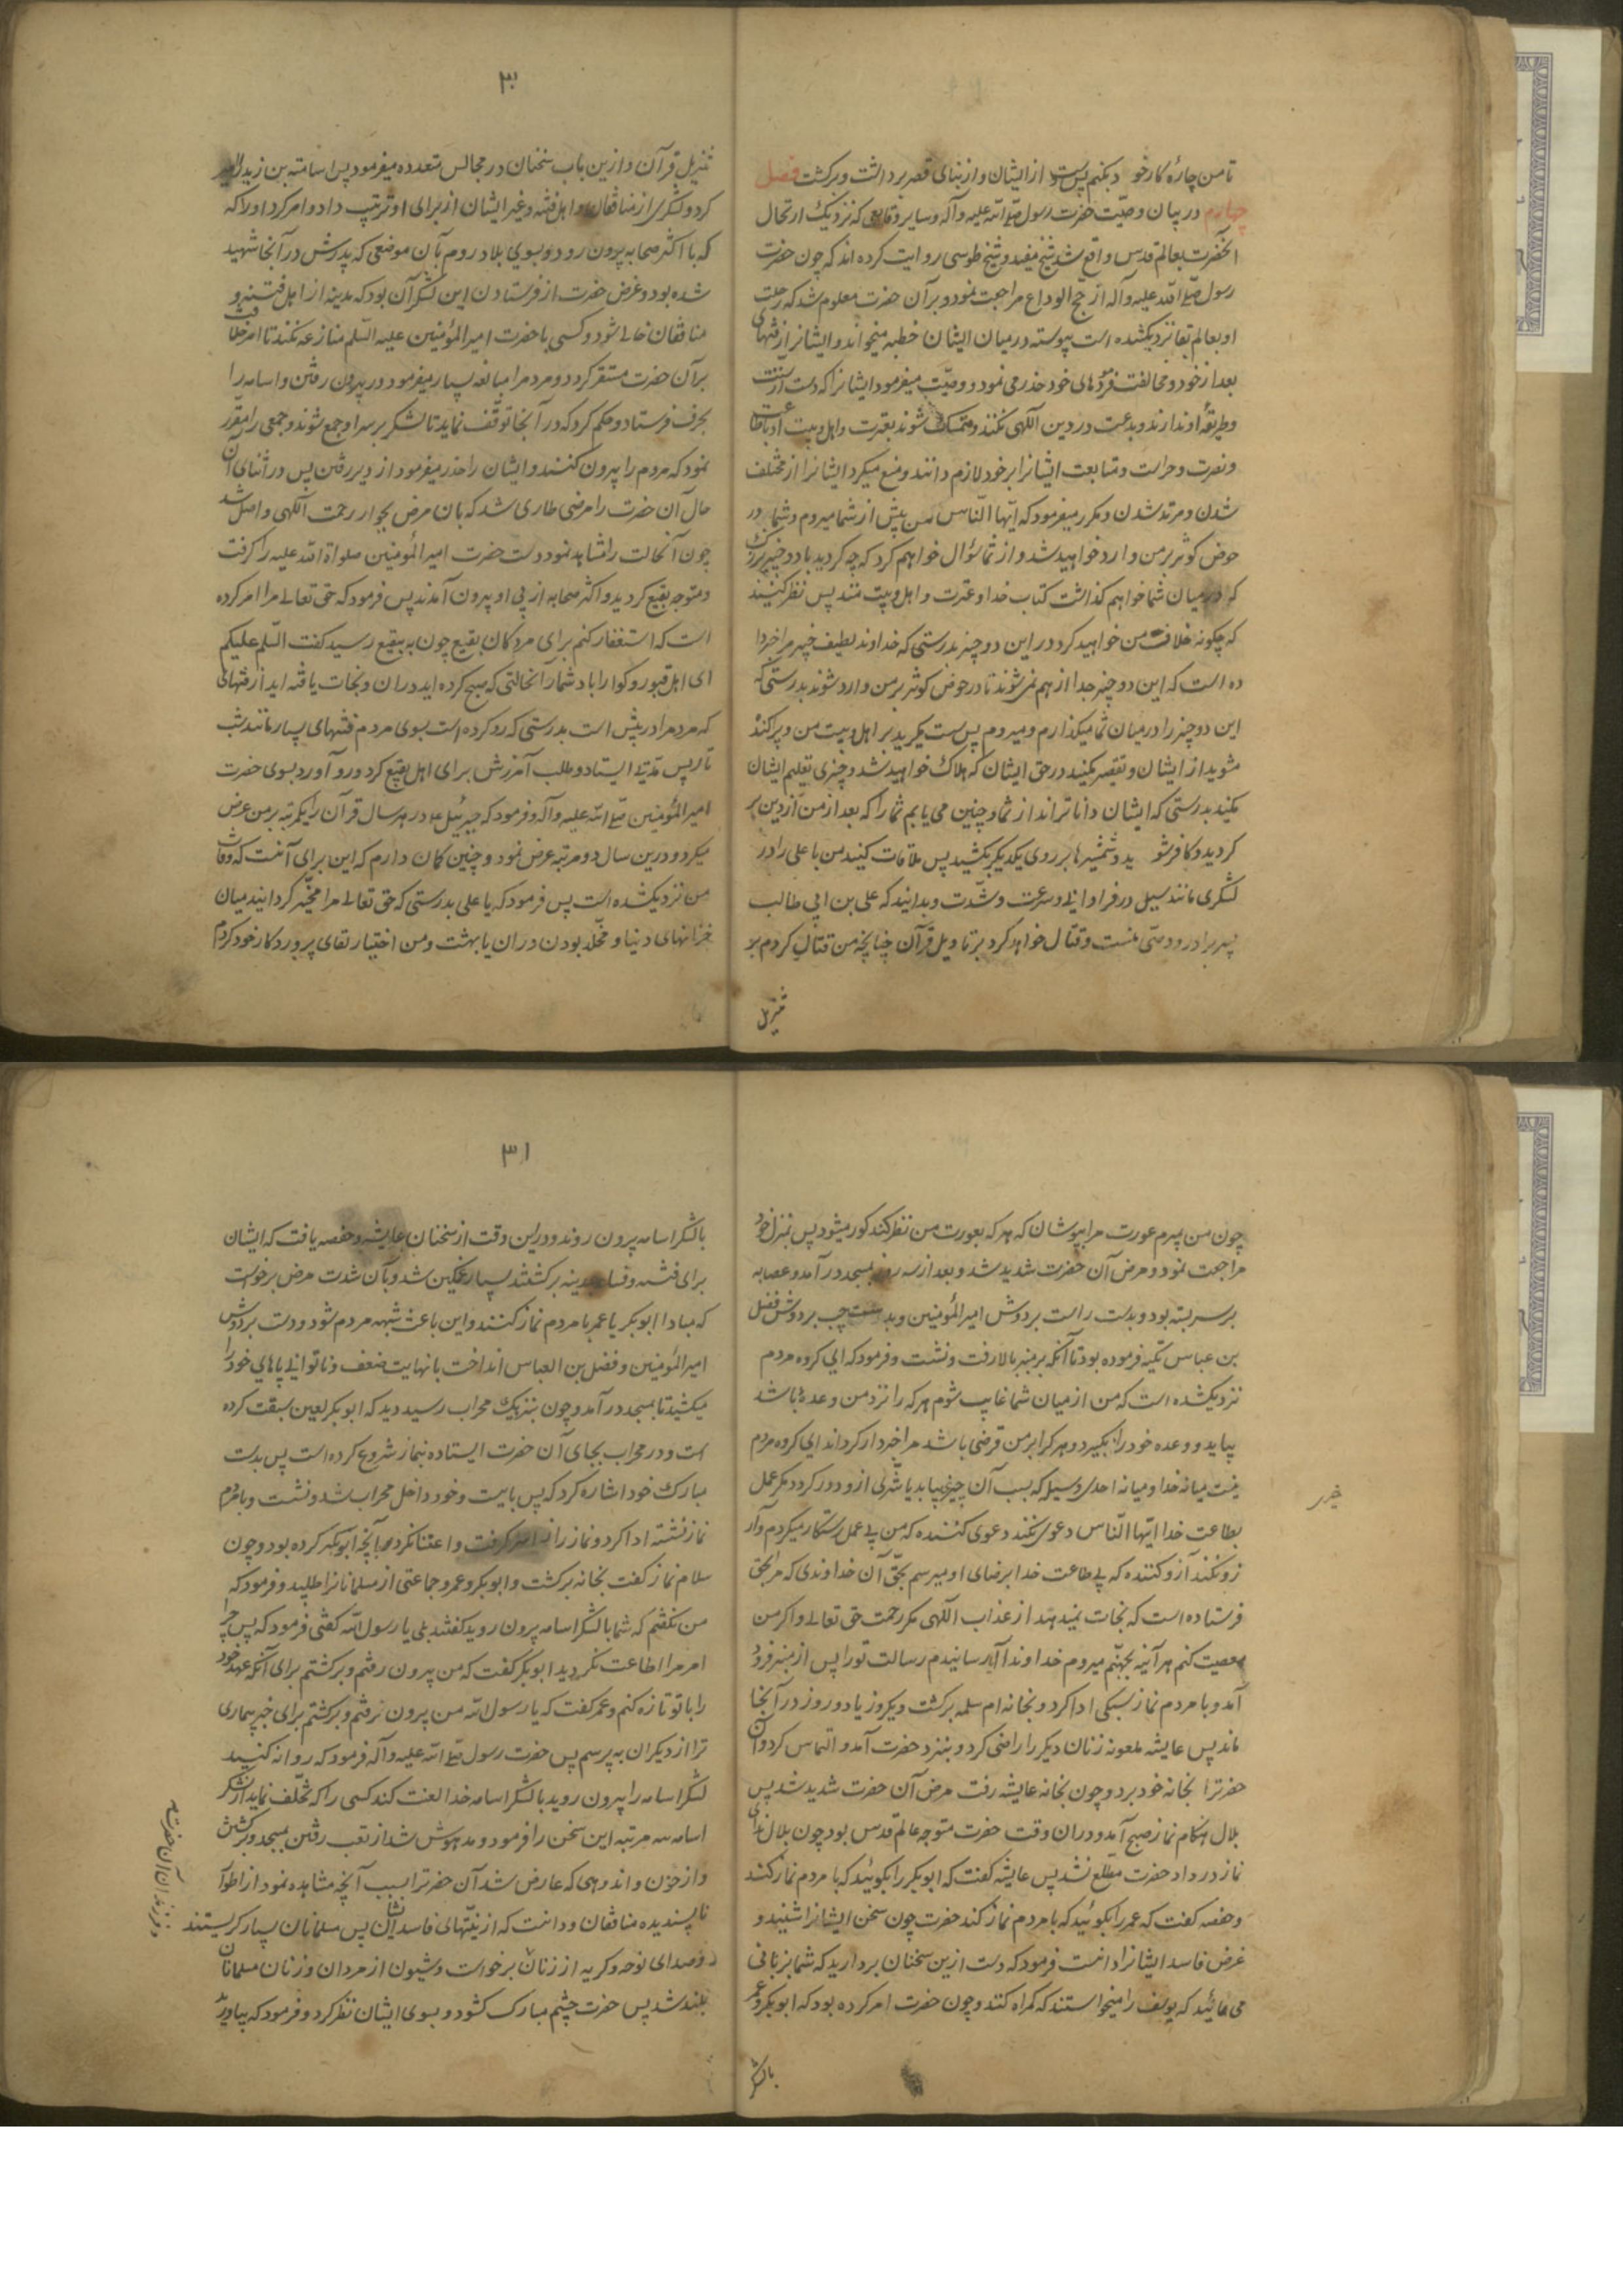 تا من چارهٔ کار خود بکنم پس دست از ایشان و از بنای قصر برداشت و برگشت فصل
چهارم در بیان وصیّت حضرت رسول صلّی الله علیه وآله و سایر وقایعی که نزدیک ارتحال
آنحضرت بعالم قدس واقع شد شیخ مفید و شیخ طوسی روایت کرده اند که چون حضرت
رسول صلّی الله علیه وآله از حج الوداع مراجعت نمود و بر آن حضرت معلوم شد که رحلت
او بعالم بقا نزدیکشده است پیوسته در میان ایشان خطبه میخواند و ایشانرا از فتنهای
بعد از خود و مخالفت فرمودهای خود حذر می نمود و وصیّت میفرمود ایشانرا که دست از سنّت
و طریقهٔ او ندارند و بدعت در دین الٓهی نکنند و متمسک شوند بعترت و اهل بیت او باطاعت
و نصرت و حراست و متابعت ایشانرا بر خود لازم دانند و منع میکرد ایشانرا از مختلف
شدن و مرتد شدن و مکرر میفرمود که ایّها النّاس من پیش از شما میروم و شما در
حوض کوثر بر من وارد خواهید شد و از شما سؤال خواهم کرد که چه کردید با دو چیز بزرگ
که در میان شما خواهم گذاشت کتاب خدا و عترت و اهل بیت منند پس نظر کنید
که چگونه خلافت من خواهید کرد در این دو چیز بدرستی که خداوند لطیف خبیر مرا خبر دا
ده است که این دو چیز جدا از هم نمی شوند تا در حوض کوثر بر من وارد شوند بدرستی که
این دو چیز را در میان شما میگذارم و میروم پس سبقت مگیرید بر اهل بیت من و پراکنده
مشوید از ایشان و تقصیر مکنید در حق ایشان که هلاک خواهید شد و چیزی تعلیم ایشان
مکنید بدرستی که ایشان داناترند از شما و چنین می یابم شما را که بعد از من از دین بر
گردید و کافر شوید و شمشیرها بر روی یکدیگر بکشید پس ملاقات کنید من یا علی را در
لشکری مانند سیل در فراوانی و سرعت و شدّت و بدانید که علی بن ابی طالب
پسر برادر و وصّی منست و قتال خواهد کرد بر تاویل قرآن چنانچه من قتال کردم بر
تنزیل
۳۰
تنزیل قرآن و ازین باب سخنان در مجالس متعدده میفرمود پس اسامة بن زید را امیر
کرد و لشکری از منافقان و اهل فتنه و غیر ایشان از برای او ترتیب داد و امر کرد او را که
که با اکثر صحابه بیرون رود و بسوی بلاد روم بآن موضعی که پدرش در آنجا شهید
شده بود و غرض حضرت از فرستادن این لشکر آن بود که مدینه از اهل فتنه و
منافقان خالی شود و کسی با حضرت امیرالمؤمنین علیه السّلم منازعه نکند تا امر خلافت
بر آن حضرت مستقر گردد و مردم را مبالغه بسیار میفرمود در بیرون رفتن و اسامه را
بجرف فرستاد و حکم کرد که در آنجا توقّف نماید تا لشکر بر سر او جمع شوند و جمعی را مقّرر
نمود که مردم را بیرون کنند و ایشان را حذر میفرمود از دیر رفتن پس در اثنای آن
حال آن حضرت را مرضی طاری شد که بان مرض بجوار رحمت الٓهی واصل شد
چون آنحالت را مشاهد نمود دست حضرت امیرالمؤمنین صلواة الله علیه را گرفت
و متوجه بقیع گردید و اکثر صحابه از پی او بیرون آمدند پس فرمود که حق تعالی مرا امر کرده
است که استغفار کنم برای مردکان بقیع چون به بقیع رسید گفت السّلم علیکم
ای اهل قبور گوارا باد شما را آنحالتی که صبح کرده اید دران و نجات یافته اید از فتنهائی
که مردم را در پیش است بدرستی که رو کرده است بسوی مردم فتنهای بسیار مانند شب
تار پس مدتی ایستاد و طلب آمرزش برای اهل بقیع کرد و رو آورد بسوی حضرت
امیرالمؤمنین صلّی الله علیه وآله و فرمود که جبرئیل ع در هر سال قرآن را یکمرتبه بر من عرض
میکرد و درین سال دو مرتبه عرض نمود و چنین گمان دارم که این برای آنست که وفات
من نزدیکشده است پس فرمود که یا علی بدرستی که حق تعالی مرا مخّیر گردانید میان
خزانهای دنیا و مخّلد بودن در ان یا بهشت و من اختیار لقای پروردکار خود کردم
چون من بمیرم عورت مرا بپوشان که هر که بعورت من نظر کند کور میشود پس بمنزل خود
مراجعت نمود و مرض آن حضرت شدید شد و بعد از سه روز بمسجد در آمد و عصابه
بر سر بسته بود و بدست راست بر دوش امیرالمؤمنین و بدست چپ بر دوش فضل
بن عباس تکیه فرموده بود تا آنکه بر منبر بالا رفت و نشست و فرمود که ای گروه مردم
نزدیکشده است که من از میان شما غایب شوم هر که را نزد من وعدهٔ باشد
بیاید و وعده خود را بگیرد و هر کرا بر من قرضی باشد مرا خبردار گرداند ای گروه مردم
نیست میانه خدا و میانه احدی وسیله که بسبب آن چیزی بیابد یا شّری ازو دور گردد مگر عمل
خیری
بطاعت خدا ایّها النّاس دعوی نکند دعوی کننده که من بی عمل رستگار میگردم و آر
زو نکند آرزو کننده که بی طاعت خدا برضای او میرسم بحّق آن خداوندی که مرا بحّق
فرستاده است که نجات نمیدهد از عذاب الٓهی مگر رحمت حق تعالی و اگر من
معصیت کنم هر آینه بجهنّم میروم خداوندا آیا رسانیدم رسالت تو را پس از منبر فرود
آمد و با مردم نماز سبکی ادا کرد و بخانه ام سلمه برگشت و یکروز یا دو روز در آنجا
ماند پس عایشه ملعونه زنان دیگر را راضی کرد و بنزد حضرت آمد و التماس کرد و آن
حضرترا بخانه خود برد و چون بخانه عایشه رفت مرض آن حضرت شدید شد پس
بلال هنگام نماز صبح آمد و دران وقت حضرت متوجه عالم قدس بود چون بلال ندای
نماز در داد حضرت مطّلع نشد پس عایشه گفت که ابوبکر را بگوئید که با مردم نماز کند
و حفصه گفت که عمر را بگوئید که با مردم نماز کند حضرت چون سخن ایشانرا شنید و
غرض فاسد ایشانرا دانست فرمود که دست ازین سخنان بردارید که شما بزنانی
می مانید که یوسف را میخواستند که گمراه کنند و چون حضرت امر کرده بود که ابوبکر و عمر
بالشکر
۳۱
بالشکر اسامه بیرون روند و دراین وقت از سخنان عایشه و حفصه یافت که ایشان
برای فتنه و فساد بمدینه برگشتند بسیار غمگین شد و بآن شدت مرض برخواست
که مبادا ابوبکر یا عمر با مردم نماز کنند و این باعث شبهه مردم شود و دست بر دوش
امیرالمؤمنین و فضل بن العباس انداخت بانهایت ضعف و ناتوانی پاهای خود را
میکشید تا بمسجد در آمد و چون بنزدیک محراب رسید دید که ابوبکر لعین سبقت کرده
است و در محراب بجای آن حضرت ایستاده بنماز شروع کرده است پس بدست
مبارک خود اشاره کرد که پس بایست و خود داخل محراب شد و نشست و با مردم
نماز نشسته ادا کرد و نماز را از سر گرفت و اعتنا نکرد بآنچه ابوبکر کرده بود و چون
سلام نماز گفت بخانه برگشت و ابوبکر و عمر و جماعتی از مسلمانانرا طلبید و فرمود که
من نگفتم که شما بالشکر اسامه بیرون روید گفتند بلی یا رسول الله گفتی فرمود که پس چرا
امر مرا اطاعت نکردید ابوبکر گفت که من بیرون رفتم و برگشتم برای آنکه عهد خود
را با تو تازه کنم و عمر گفت که یا رسول الله من بیرون نرفتم و برگشتم برای خبر بیماری
ترا از دیگران به پرسم پس حضرت رسول صلّی الله علیه وآله فرمود که روانه کنید
لشکر اسامه را بیرون روید بالشکر اسامه خدا لعنت کند کسی را که تخلّف نماید از لشکر
اسامه سه مرتبه این سخن را فرمود و مدهوش شد از تعب رفتن بمسجد و برگشتن
و از حزن و اندوهی که عارض شد آن حضرترا بسبب آنچه مشاهده نمود از اطوار
ناپسندیده منافقان و دانست که از نیّتهای فاسد ایشان پس مسلمانان بسیار گریستند
و صدای نوحه و گریه از زنان برخواست و شیون از مردان و زنان مسلمانان
بلند شد پس حضرت چشم مبارک گشود و بسوی ایشان نظر کرد و فرمود که بیاورید
و فرزندان آن حضرت